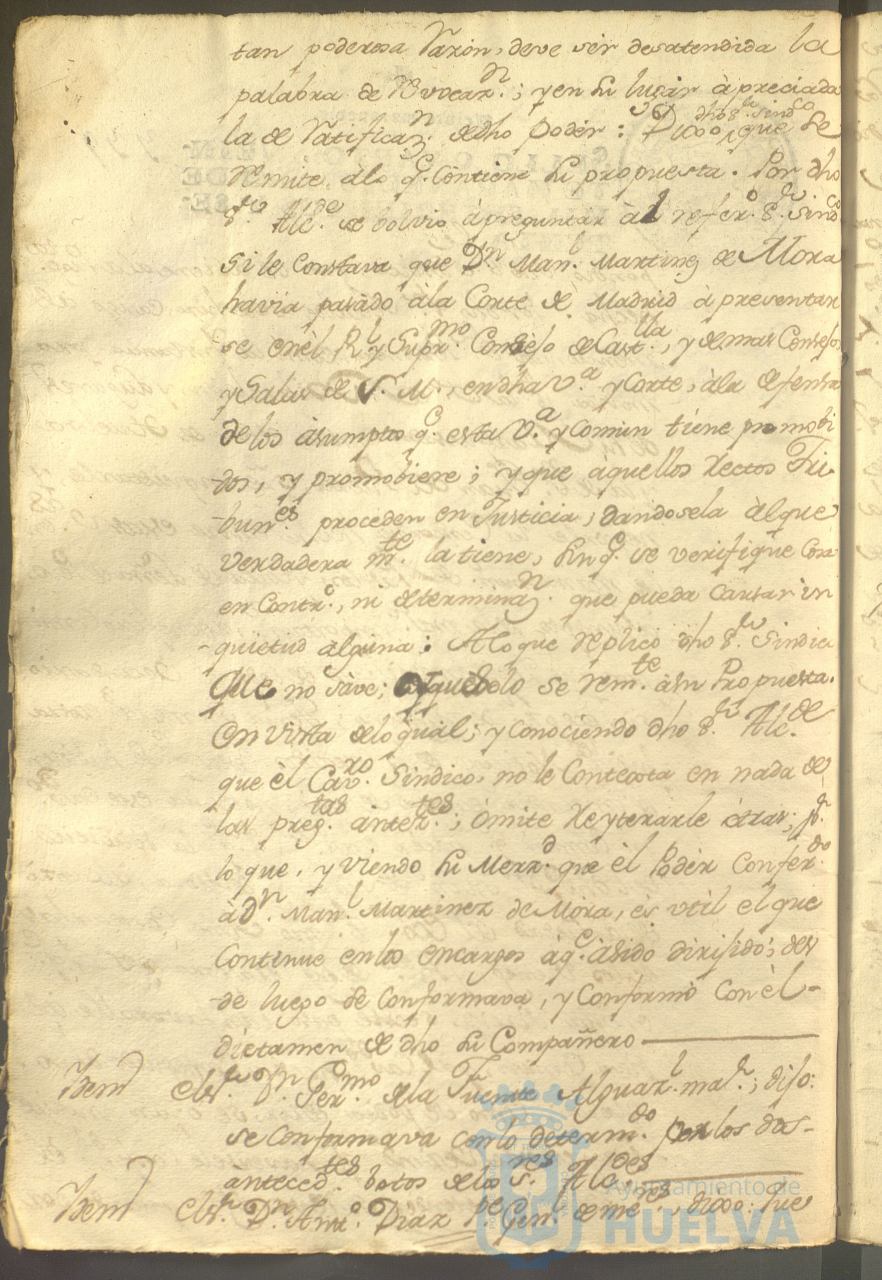 tan poderosa Razon, deve sér desatendida la
palabra de Revocaz.n; y en su lugar àpreciada
la de Ratificaz.n de dho Poder: Dixo dho S.r Sindco, que se
Remite, alo q.e Contiene su propuesta. Por dho
S.r Alc.de se bolvio à preguntar àl refer.o S.r Sindco
si le Constava que D.n Man.l Martinez de Mora
havia pasàdo àla Corte de Madrid à presentar
se en èl R.l y Supr.mo Consejo de Cast.lla, y demas Consejos
y Salas de S. M., en dha V.a y Corte, àla defensa
de los àsumptos q.e esta V.a y Comun tiene promobi
dos, y promobiere; y que àquellos Rectos Tri
bun.es proceden en Justicia, dandosela àl que
Verdadera m.te la tiene, sin q.e se verifique Cosa
en Contr.o, ni determinaz.n que pueda Causar in
quietud alguna: Alo que replicó dho S.r Sindico
Que no sàve; se rem.te à su Propuesta.
En Vista delo qual; y conociendo dho S.r Alc.de
que èl Cav.ro Sindico, no le Contexta en nada de
las preg.tas anter.tes; òmite Reyterarle òtras; p.r
lo que, y viendo su Merz.d que èl Podèr Confer.do
à D.n Man.l Martinez de Mora, és vtil el que
Continue en los encargos àq.e àsido dirijido; des
de luego se Conformava, y Conformò Con èl
dictamen de dho su Compañero
Item El S.r D.n Ger.mo dela Fuente Alguaz.l ma.r; dijo:
se Conformava con lo determ.do por los dos
anteced.tes botos de los S.res Alc.des
Item El S.r D.n Ant.o Diaz P.e Gen.l de me.res, dixo: que
Ayuntamiento de
HUELVA